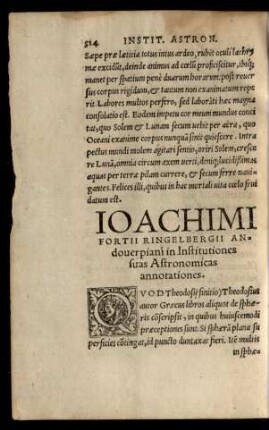 514 INSTIT. ASTRON.
Sæpe præ lætitia totus intus ardeo, rubẽt oculi lachry
mæ excidũt, deinde animus ad cœlũ proficiscitur, ibiq́;
manet per spatium penè duarum horarum: post reuer
sus corpus rigidum, & tanquam non examinatum repe
rit. Labores multos perfero, sed laboris hæc magna
consolatio est. Eodem impetu cor meum mundus conci
tat, quo Solem & Lunam secum uehit per aëra, quo
Oceani examine corpus nunquã sinit quiescere. Intra
pectus mundi molem agitari sentio, oriri Solem, cresce
re Lunã, omnia circum axem uerti,
aquas per terræ pilam currere, & secum ferre naui-
gantes. Felices illi, quibus in hac mortali uita cœlo frui
datum est.
IOACHIMI
FORTII RINGELBERGII AN-
douerpiani in Institutiones
suas Astronomicas
annotationes.
QVOD Theodosij finitio) Theodosius
autor Græcus libros aliquot de sphæ-
ris cõscripsit, in quibus huiuscemodi
præceptiones sunt. Si sphæra plana su
perficies cõtingat, id puncto duntaxat fieri. Itẽ multis
in sphæ-